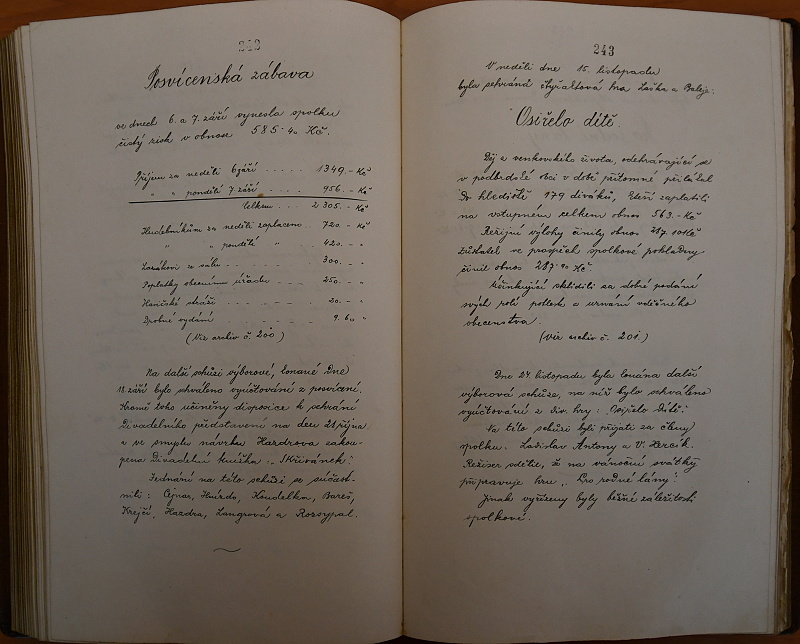 242
Posvícenská zábava
ve dnech 6. a 7. září vynesla spolku
čistý zisk v obnose 585·40 Kč.
Příjem za neděli 6 září .... 1349.- Kč
" " pondělí 7. září .... 956.- Kč
Celkem ... 2305.- Kč
Hudebníkům za neděli zaplaceno .. 720.- Kč
" " pondělí " .. 420.- "
za sál ........ 300.- "
Poplatky obecnímu úřadu .... 250.- "
Hasičské stráži ...... 20.- "
Drobné vydání ...... 9.60 "
(Viz archiv č. 200)
Na další schůzi výborové, konané dne
18. září bylo schváleno vyúčtování z posvícení.
Kromě toho učiněny disposice k sehrání
divadelního představení na den 28 října
a ve smyslu návrhu Hazdrova zakou-
pena divadelní knížka „Skřivánek."
Jednání na této schůzi se súčast-
nili: Cejnar, Hnízdo, Koudelka, Bareš,
Krejčí, Hazdra, Langrová a Rozsypal.
243
V neděli dne 15. listopadu
byla sehrána čtyřaktová hra Laška a
Osiřelo dítě.
Děj z venkovského života, odehrávající se
v podbrdské obci v době přítomné přilákal
do hlediště 179 diváků, kteří zaplatili
na vstupném celkem obnos 563.- Kč
Režijní výlohy činily obnos
Zůstatek ve prospěch spolkové pokladny
činil obnos Kč.
Účinkující sklidili za dobré podání
svých rolí potlesk a uznání vděčného
obecenstva.
(Viz archiv č. 201.)
Dne 24 listopadu byla konána další
výborová schůze, na níž bylo schváleno
vyúčtování z div. hry: „Osiřelo dítě."
Na této schůzi byli přijati za členy
spolku: Ladislav Antony a V. Herčík.
Režiser sdělil, že na vánoční svátky
připravuje hru „Pro rodné lány."
Jinak vyřízeny byly běžné záležitosti
spolkové.